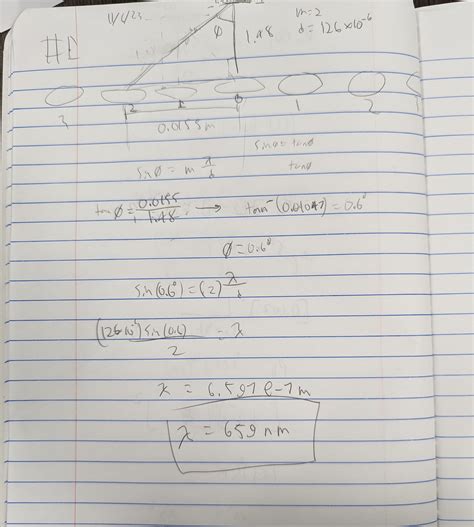 m=2
#1
φ
1.48
d = 126 x10^-6
3 2 1 0 1 2
0.0155m
sinφ = tanφ
sinφ = m λ/d
tanφ
tanφ = 0.0155/1.48 → tan^-(0.01047) = 0.6°
φ = 0.6°
sin(0.6°) = (2) λ/d
(126x10^-6) sin(0.6)/2 = λ
λ = 6.597 e-7 m
λ = 659 nm